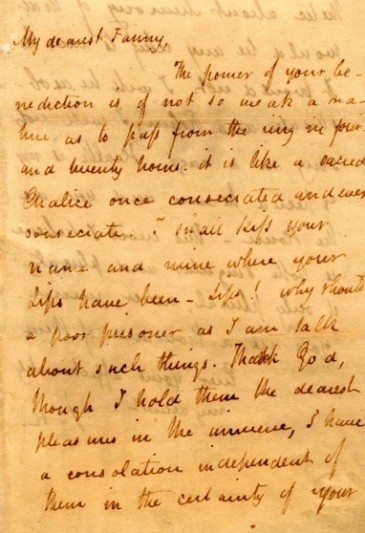 My dearest Fanny,
The power of your be-
nediction is of not so weak a na-
ture as to pass from the ring in four
and twenty hours - it is like a sacred
Chalice once consecrated and ever
consecrate. I shall kiss your
name and mine where your
Lips have been - Lips! why should
a poor prisoner as I am talk
about such things. Thank God,
though I hold them the dearest
pleasures in the universe, I have
a consolation independent of
them in the certainty of your